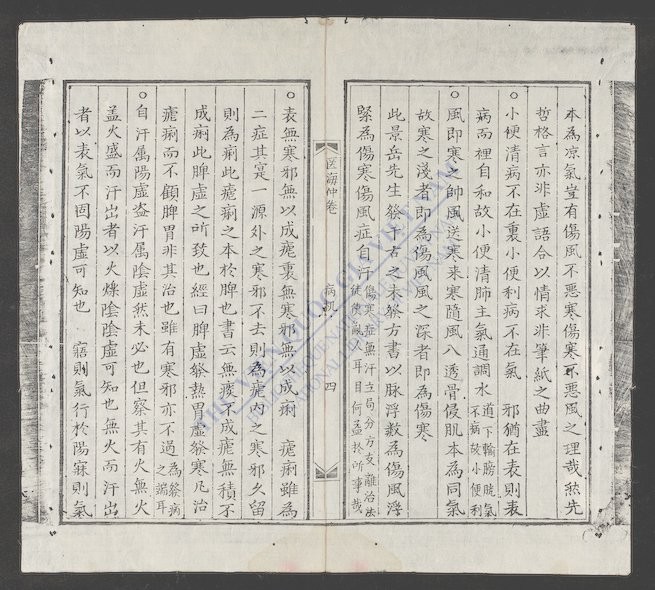 本為凉氣豈有傷風不惡寒傷寒不惡風之理哉然先
哲格言亦非虛語合以情求非筆紙之曲盡
○小便清病不在裏小便利病不在氣 邪猶在表則表
病而裡自和故小便清肺主氣通調水道下輸膀胱氣不病故小便利
○風即寒之帥風送寒来寒隨風入透骨侵肌本為同氣
故寒之淺者即為傷風風之深者即為傷寒
此景岳先生發千古之未發方書以脉浮數為傷風浮
緊為傷寒傷風症自汗傷寒症無汗立局分方支離治法徒使亂人耳目何益扵所事哉
医海中卷
病説
四
○表無寒邪無以成瘧裏無寒邪無以成痢 瘧痢雖為
二症其寔一源外之寒邪不去則為瘧内之寒邪久留
則為痢此瘧痢之本於脾也書云無痰不成瘧無積不
成痢此脾虛之所致也經曰脾虛發熱胃虛發寒凡治
瘧痢而不顧脾胃非其治也雖有寒邪亦不過為發病之端耳
○自汗属陽虛盗汗属陰虛然未必也但察其有火無火
盖火盛而汗出者以火爍陰陰虛可知也無火而汗出
者以表氣不固陽虛可知也 寤則氣行於陽寐則氣